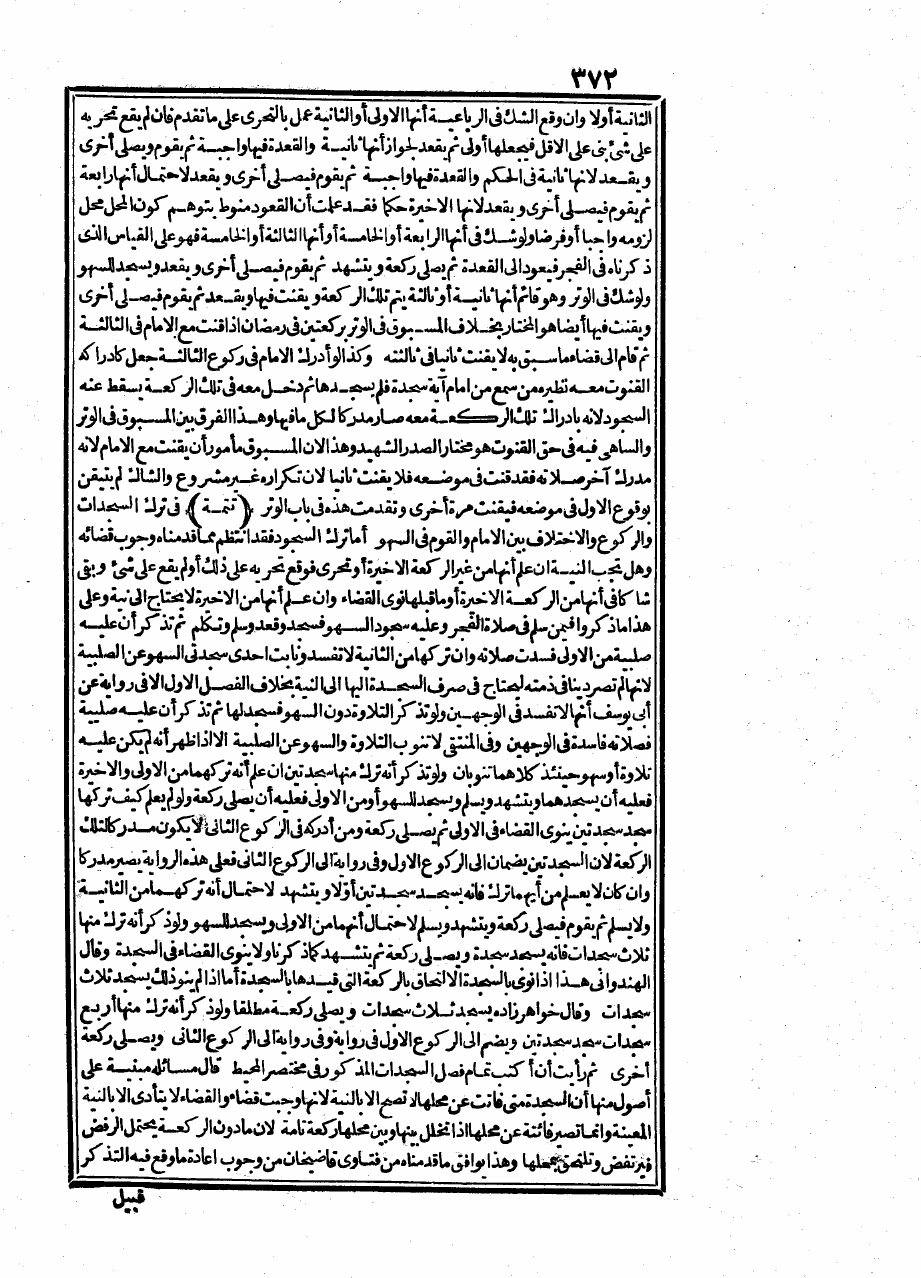 ٣٧٢
الثانية أولا وان وقع الشك فى الرباعية أنها الاولى أو الثانية عمل بالتحرى على ما تقدم فان لم يقع تحريه
على شئ بنى على الاقل فيجعلها أولى ثم يقعد لجواز أنها ثانية والقعدة فيها واجبة ثم يقوم ويصلى أخرى
ويقعد لانها ثانية فى الحكم والقعدة فيها واجبة ثم يقوم فيصلى أخرى ويقعد لاحتمال أنها رابعة
ثم يقوم فيصلى أخرى ويقعد لانها الاخيرة حكما فقد علمت أن القعود منوط بتوهم كون المحل محل
لزومه واجبا أو فرضا ولو شك فى أنها الرابعة أو الخامسة أو أنها الثالثة أو الخامسة فهو على القياس الذى
ذكرناه فى الفجر فيعود الى القعدة ثم يصلى ركعة ويتشهد ثم يقوم فيصلى أخرى ويقعد ويسجد للسهو
ولو شك فى الوتر وهو قائم أنها ثانية أو ثالثة يتم تلك الركعة ويقنت فيها ويقعد ثم يقوم فيصلى أخرى
ويقنت فيها أيضا هو المختار بخلاف المسبوق فى الوتر بركعتين فى رمضان اذا قنت مع الامام فى الثالثة
ثم قام الى قضاء ما سبق به لا يقنت ثانيا فى ثالثته وكذا لو أدرك الامام فى ركوع الثالثة جعل كادراكه
القنوت معه نظيره من سمع من امام آية سجدة فلم يسجدها ثم دخل معه فى تلك الركعة يسقط عنه
السجود لانه بادراك تلك الركعة معه صار مدركا لكل ما فيها وهذا الفرق بين المسبوق فى الوتر
والساهى فيه فى حق القنوت هو مختار الصدر الشهيد وهذا لان المسبوق مأمور أن يقنت مع الامام لانه
مدرك آخر صلاته فقد قنت فى موضعه فلا يقنت ثانيا لان تكراره غير مشروع والشاك لم يتيقن
بوقوع الاول فى موضعه فيقنت مرة أخرى وتقدمت هذه فى باب الوتر (تتمة) فى ترك السجدات
والركوع والاختلاف بين الامام والقوم فى السهو أما ترك السجود فقد انتظم مما قدمناه وجوب قضائه
وهل تجب النية ان علم أنها من غير الركعة الاخيرة أو تحرى فوقع تحريه على ذلك أو لم يقع على شئ وبقى
شاكا فى أنها من الركعة الاخيرة أو ما قبلها نوى القضاء وان علم أنها من الاخيرة لا يحتاج الى نية وعلى
هذا ما ذكروا فيمن سلم فى صلاة الفجر وعليه سجود السهو فسجد وقعد وسلم وتكلم ثم تذكر أن عليه
صلبية من الاولى فسدت صلاته وان تركها من الثانية لا تفسد ونابت احدى سجدتى السهو عن الصلبية
لانها لم تصر دينا فى ذمته ليحتاج فى صرف السجدة اليها الى النية بخلاف الفصل الاول الا فى رواية عن
أبى يوسف أنها لا تفسد فى الوجهين ولو تذكر التلاوة دون السهو فسجد لها ثم تذكر أن عليه صلبية
فصلاته فاسدة فى الوجهين وفى المنتقى لا تنوب التلاوة والسهو عن الصلبية الا اذا ظهر أنه لم يكن عليه
تلاوة أو سهو حينئذ كلاهما تنوبان ولو تذكر أنه ترك منها سجدتين ان علم أنه تركهما من الاولى والاخيرة
فعليه أن يسجدهما ويتشهد ويسلم ويسجد للسهو أو من الاولى فعليه أن يصلى ركعة ولو لم يعلم كيف تركها
سجد سجدتين ينوى القضاء فى الاولى ثم يصلى ركعة ومن أدركه فى الركوع الثانى لا يكون مدركا لتلك
الركعة لان السجدتين يضمان الى الركوع الاول وفى رواية الى الركوع الثانى فعلى هذه الرواية يصير مدركا
وان كان لا يعلم من أيهما ترك فانه يسجد سجدتين أوّلا ويتشهد لاحتمال أنه تركهما من الثانية
ولا يسلم ثم يقوم فيصلى ركعة ويتشهد ويسلم لاحتمال أنهما من الاولى ويسجد للسهو ولو ذكر أنه ترك منها
ثلاث سجدات فانه يسجد سجدة ويصلى ركعة ثم يتشهد كما ذكرنا ولا ينوى القضاء فى السجدة وقال
الهندوانى هذا اذا نوى بالسجدة الالتحاق بالركعة التى قيدها بالسجدة أما اذا لم ينو ذلك يسجد ثلاث
سجدات وقال خواهر زاده يسجد ثلاث سجدات ويصلى ركعة مطلقا ولو ذكر أنه ترك منها أربع
سجدات سجد سجدتين ويضم الى الركوع الاول فى رواية وفى رواية الى الركوع الثانى ويصلى ركعة
أخرى ثم رأيت أن أكتب تمام فصل السجدات المذكور فى مختصر المحيط قال مسائله مبنية على
أصول منها أن السجدة متى فاتت عن محلها لا تصح الا بالنية لانها وجبت قضاء والقضاء لا يتأدى الا بالنية
المعينة وانما تصير فائتة عن محلها اذا تخلل بينها وبين محلها ركعة تامة لان ما دون الركعة يحتمل الرفض
فيرتفض وتلتحق بمحلها وهذا يوافق ما قدمناه من فتاوى قاضيخان من وجوب اعادة ما وقع فيه التذكر
قبيل